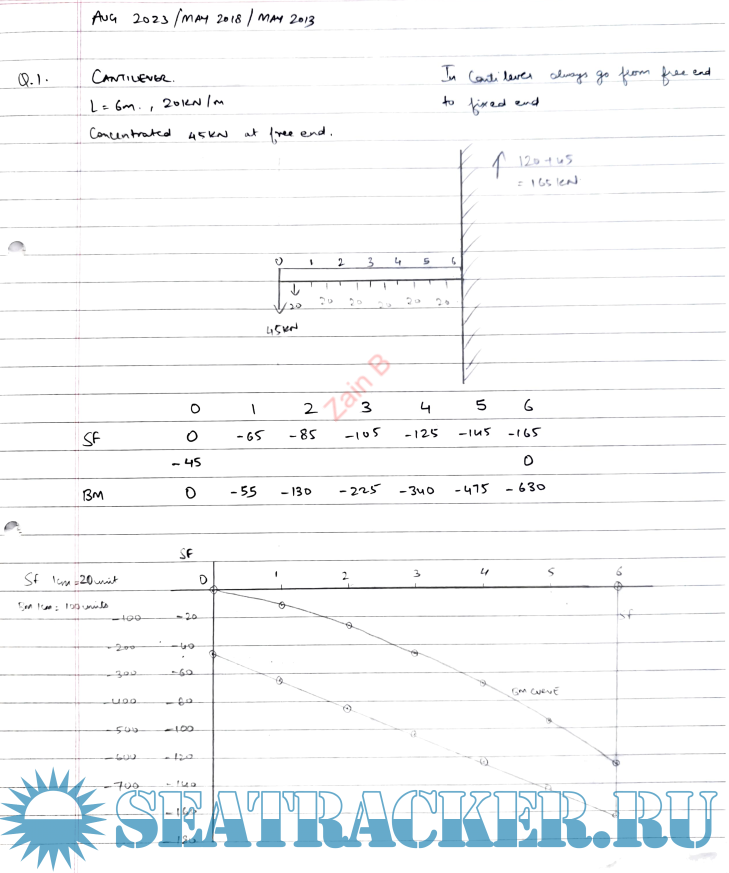 AUG 2023 / MAY 2018 / MAY 2013
Q.1. CANTILEVER.
In Cantilever always go from free end
to fixed end
L = 6m. , 20KN/m
Concentrated 45KN at free end.
↑ 120+45
= 165 KN
0 1 2 3 4 5 6
20 20 20 20 20 20
45KN
Zain B
0 1 2 3 4 5 6
SF 0 -65 -85 -105 -125 -145 -165
-45 0
BM 0 -55 -130 -225 -340 -475 -630
SF
Sf 1cm = 20 unit
0 1 2 3 4 5 6
Bm 1cm = 100 units
-100 -20
-200 -40
-300 -60
-400 -80
BM CURVE
-500 -100
-600 -120
-700 -140
-160
-180
SEATRACKER.RU